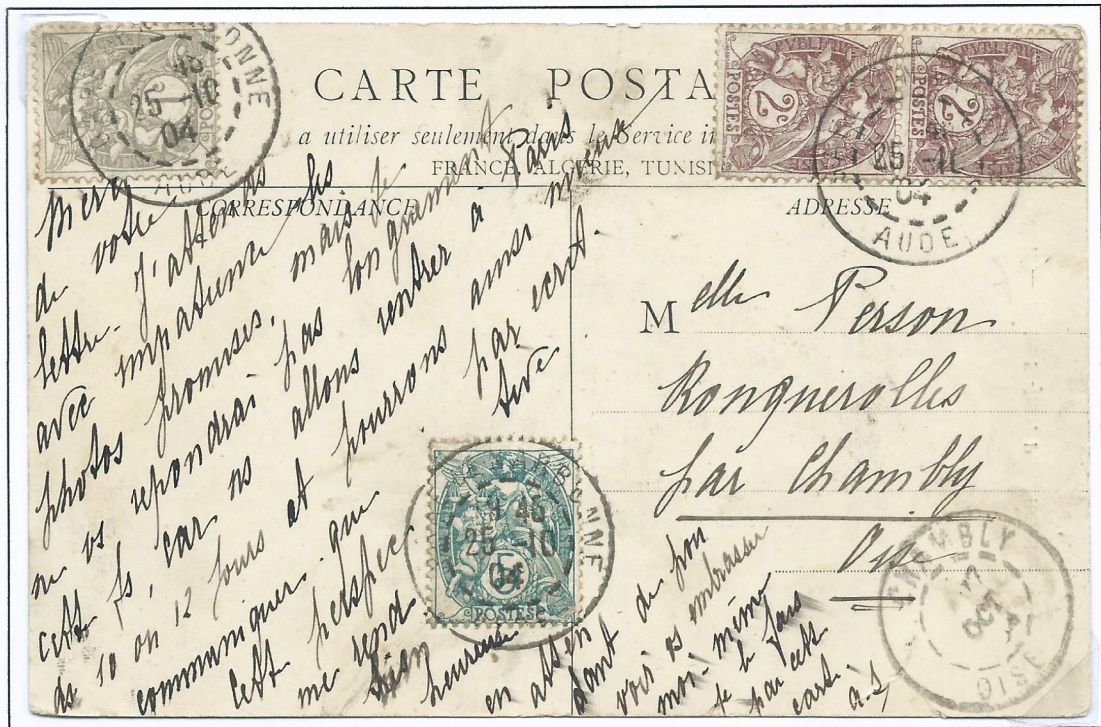 CARTE POSTA
a utiliser seulement dans le Service in
FRANCE, ALGÉRIE, TUNISI
CORRESPONDANCE
ADRESSE
Merci
de votre
lettre. J'attends
avec impatience les
photos promises, mais je
ne vs repondrai pas longuement
cette fs, car ns allons rentrer à Paris
ds 10 ou 12 jours et pourrons ainsi mieux
communiquer que par ecrit.
Cette perspec
tive
me rend
bien heureuse
en atten
dant de pou
voir vs embrasser
moi-même
je le fais
par cette
carte
a.S
Melle Person
Ronquerolles
par Chambly
Oise
POSTES
1
25 10
04
AUDE
RÉPUBLIQUE
POSTES
2
POSTES
2
25 -10
04
AUDE
1 45
25 -10
04
5
POSTES
CHAMBLY
OCT
OISE